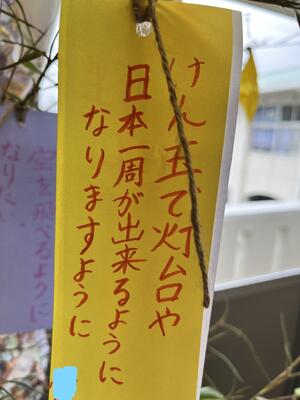 けん玉で灯台や
日本一周が出来るように
なりますように
空を飛べるように
なりたい